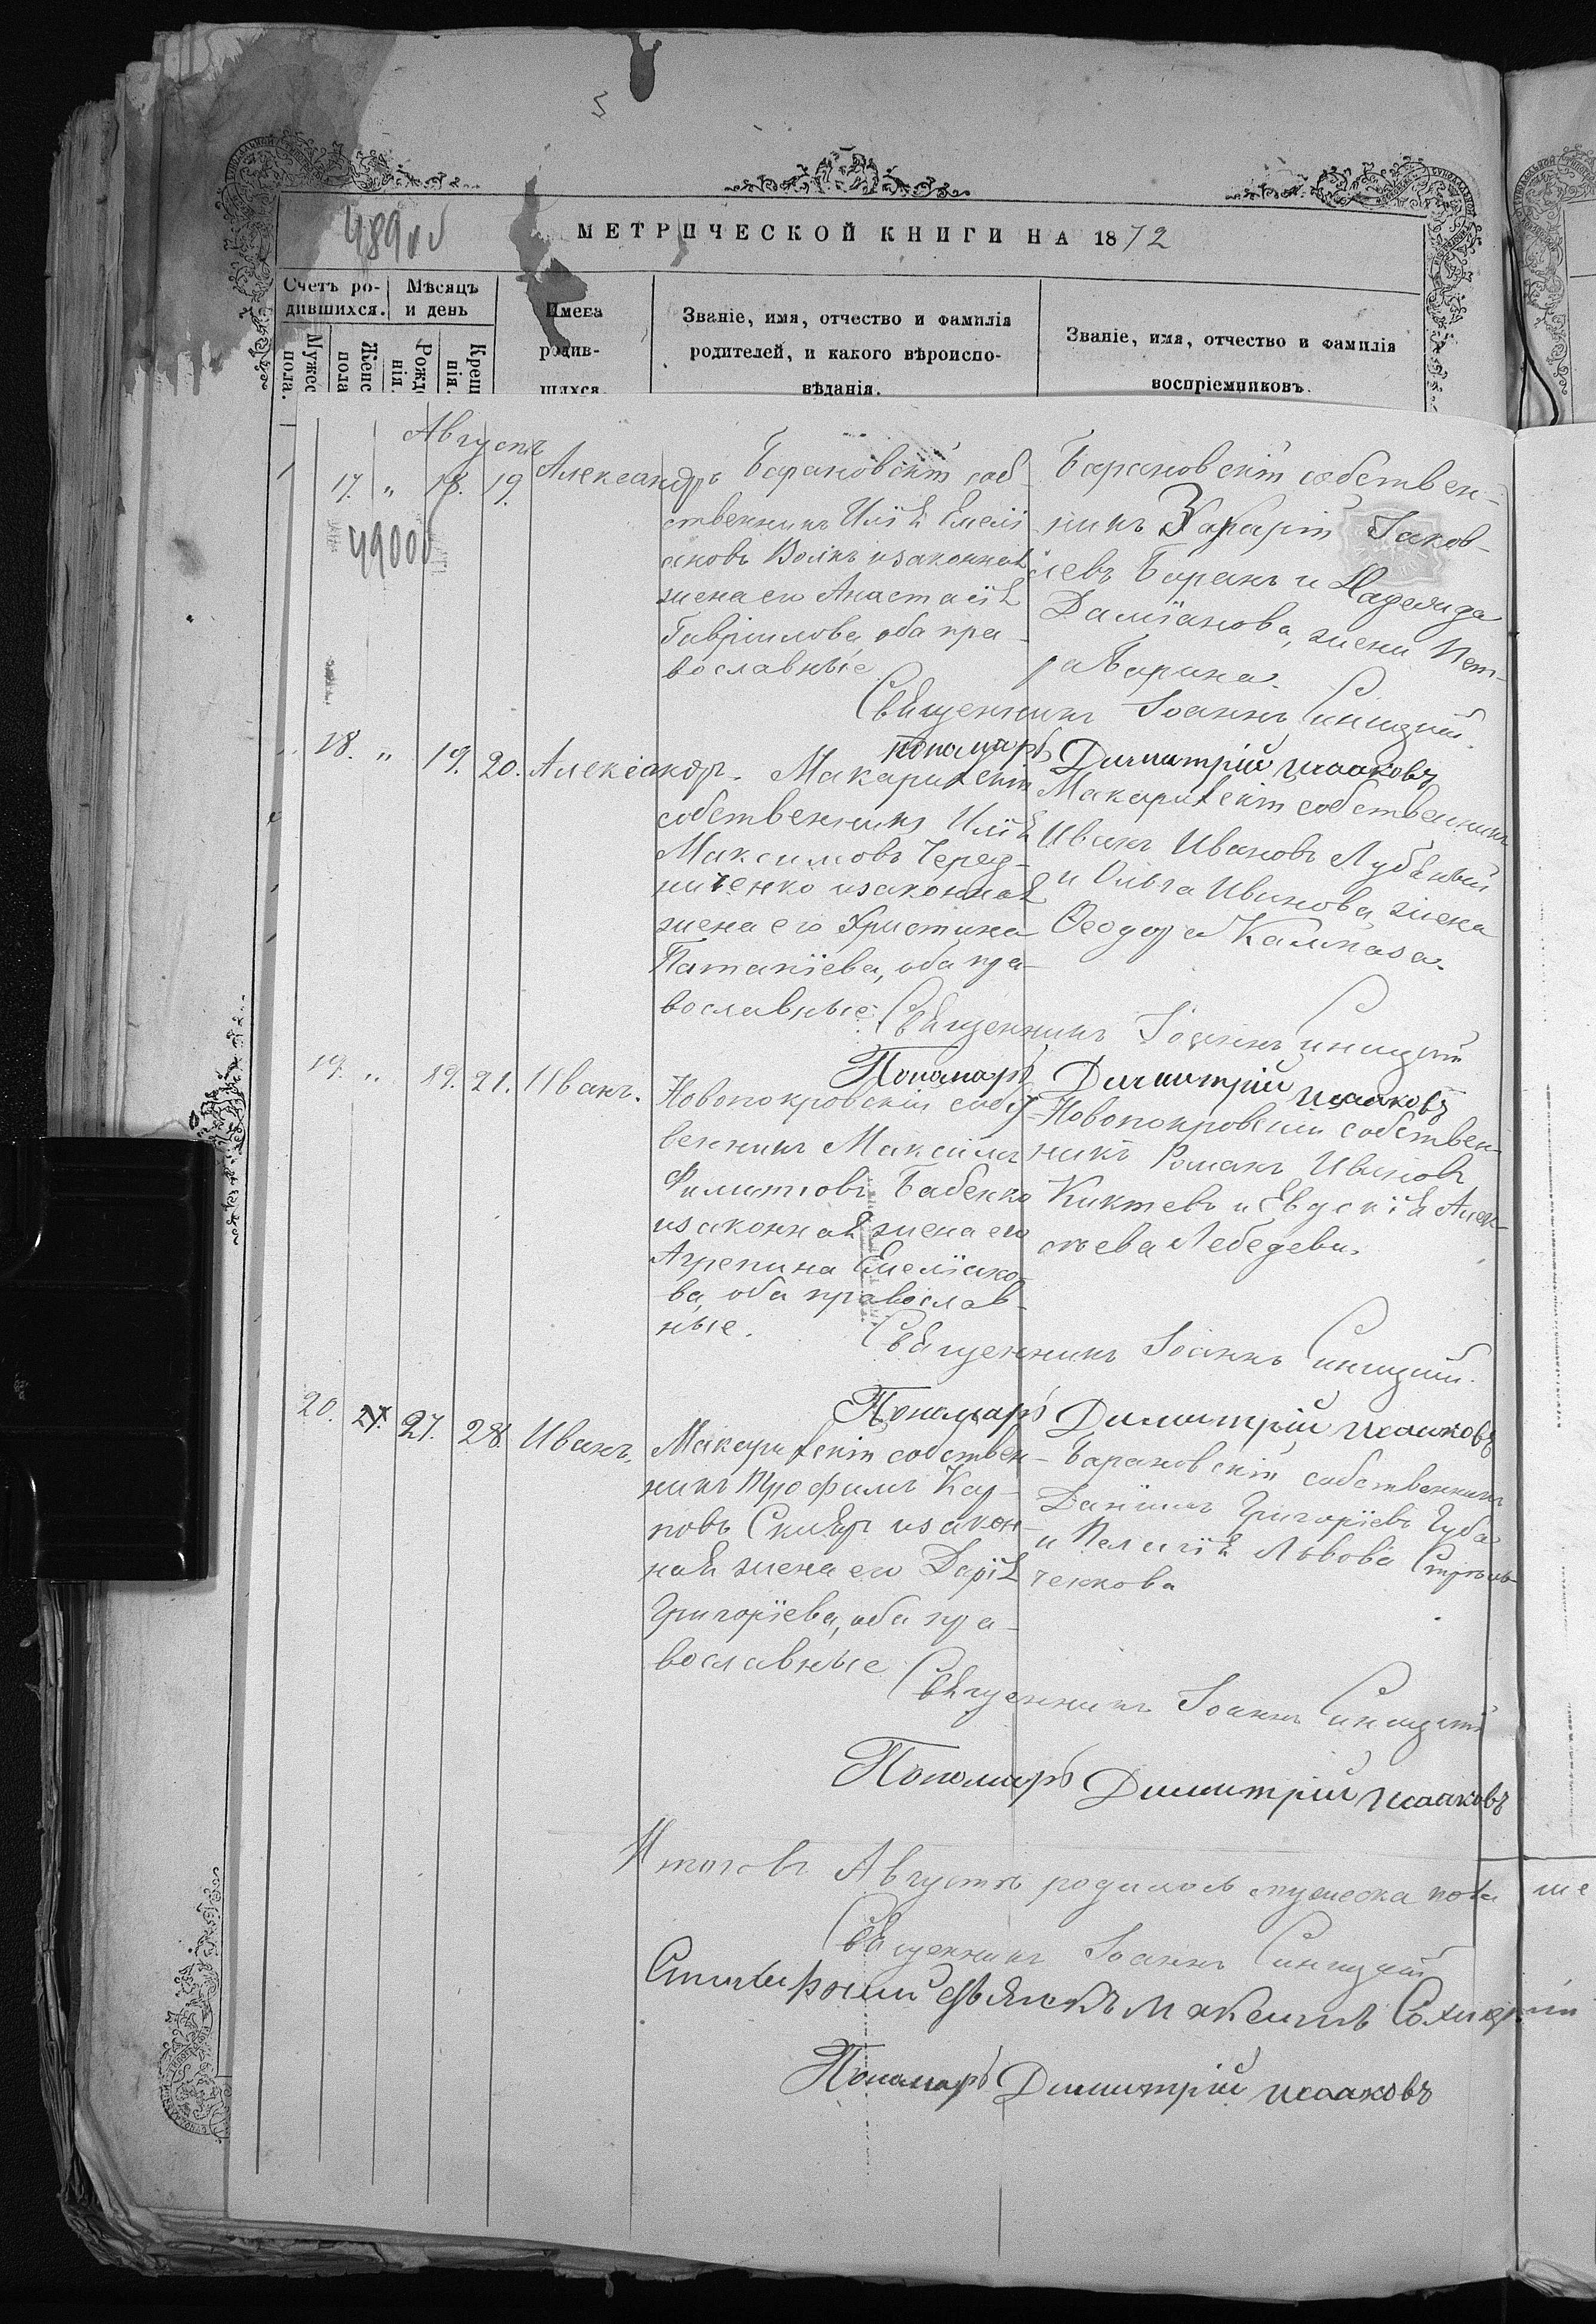 489 об
МЕТРИЧЕСКОЙ КНИГИ НА 1872
Счетъ ро-
дившихся.
Мѣсяцъ
и день
Имена
родив-
шихся.
Званіе, имя, отчество и фамилія
родителей, и какого вѣроиспо-
вѣданія.
Званіе, имя, отчество и фамилія
воспріемниковъ.
Мужес
пола.
Женс
пола
Рожде
нія.
Крещ
нія.
Августъ
17. " 18. 19. Александръ
Барановскій соб-
ственникъ Илія Емелі
ановъ Волкъ и законная
жена его Анастасія
Гавріилова, оба пра-
вославные
Барановскій собствен-
никъ Захарій Іаков-
левъ Баранъ и Надежда
Даміанова, жена Пет-
ра Барана.
49000
Священникъ Іоаннъ Синицкій.
Пономарь Димитрій Исааковъ
18. " 19. 20. Александръ.
Макарихскій
собственникъ Илія
Максимовъ Черед-
ниченко и законная
жена его Христина
Патапіева, оба пра-
вославные.
Макарихскій собственникъ
Иванъ Ивановъ
и Ольга Иванова, жена
Феодора
Священникъ Іоаннъ Синицкій
Пономарь Димитрій Исааковъ
19. " 19. 21. Иванъ.
Новопокровскій собст-
венникъ Максимъ
Филиповъ Бабенко
и законная жена его
Агрепина Емеліано-
ва, оба православ-
ные.
Новопокровскій собствен-
никъ Романъ Ивановъ
Киктевъ и Евдокія Алек-
сѣева Лебедева.
Священникъ Іоаннъ Синицкій.
Пономарь Димитрій Исааковъ
20. 27. 28. Иванъ.
Макарихскій собствен-
никъ Трофимъ Кар-
повъ Скляр и закон-
ная жена его Дарія
Григоріева, оба пра-
вославные
Барановскій собственникъ
Даніилъ Григоріевъ Губа
и Пелагія Львова Стрѣль-
ченкова
Священникъ Іоаннъ Синицкій
Пономарь Димитрій Исааковъ
Итого въ Августѣ родилось мужеска пола
Священникъ Іоаннъ Синицкій
Максимъ
Пономарь Димитрій Исааковъ